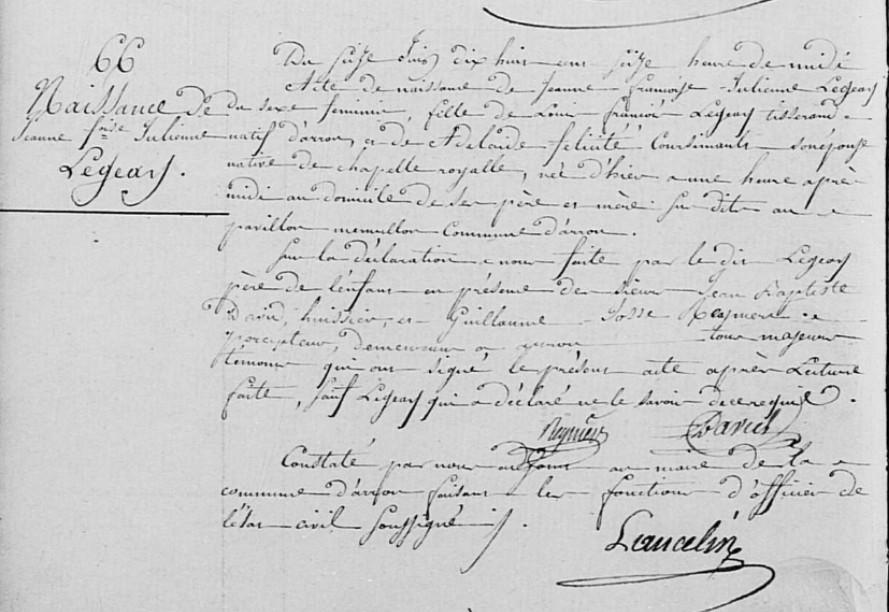 66
Naissance de
Jeanne f.oise Julienne
Legeay.
Du seize Juin dix huit cent seize heure de midi
Acte de naissance de Jeanne francoise Julienne Legeay
du sexe feminin, fille de Louis francois Legeay tisserand
natif d'arrou, et de Adelaide felicité son épouse
native de chapelle royalle, née d'hier a une heure après
midi au domicile de ses père et mère sus dits au
pavillon commune d'arrou.
Sur la déclaration a nous faite par le dit Legeay
père de l'enfant en présence de sieur Jean Baptiste
David, huissier, et Guillaume Josse
percepteur, demeurant a arrou tous majeurs
témoins qui ont signé le présent acte après Lecture
faite, sauf Legeay qui a déclaré ne le savoir de ce requis.
David
Constaté par nous adjoint au maire de la
commune d'arrou faisant les fonctions d'officier de
l'état civil soussigné.
Lancelin